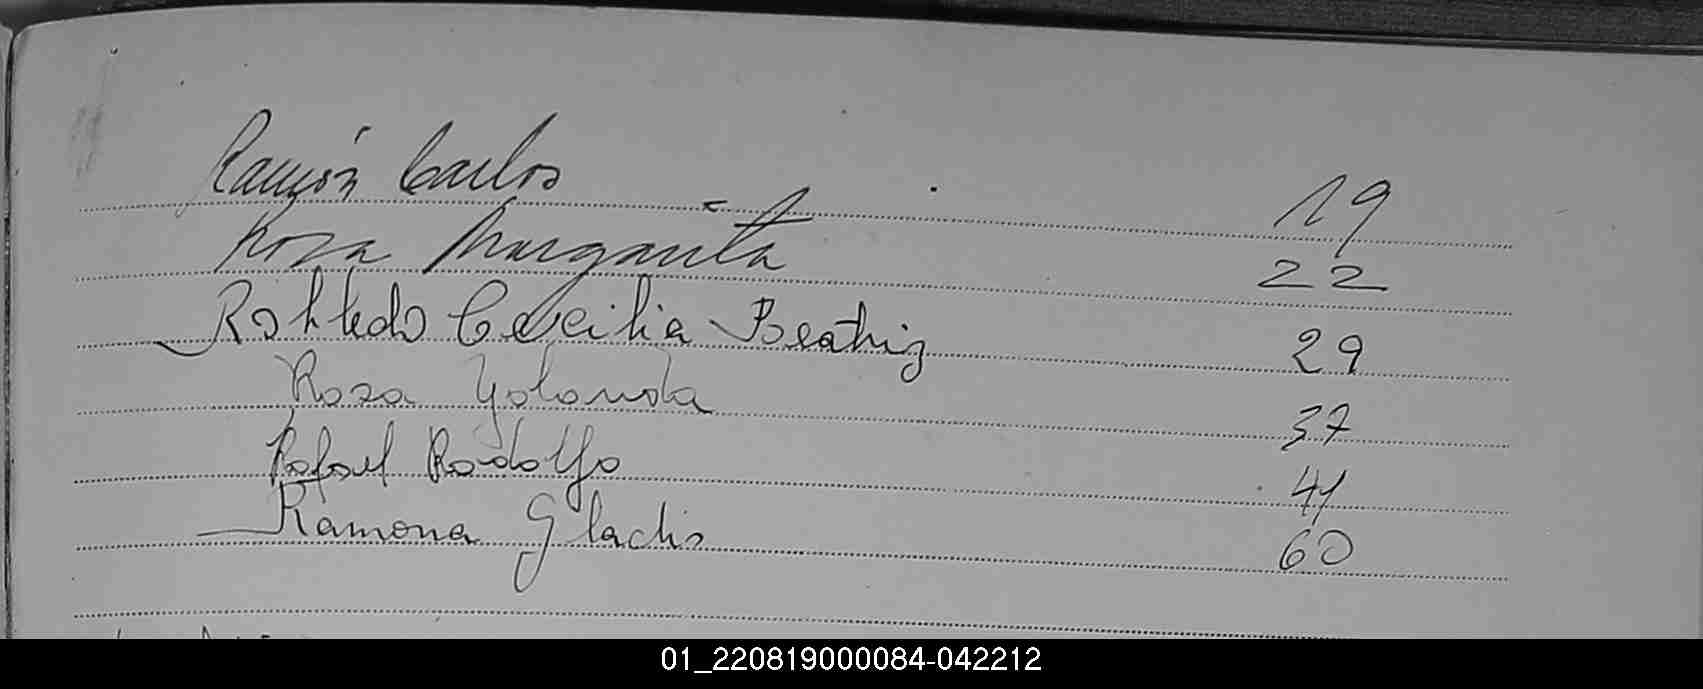 Ramón Carlos 19
Rosa Margarita 22
Robledo Cecilia Beatriz 29
Rosa Yolanda 37
Rafael Rodolfo 41
Ramona Gladis 60
01_220819000084-042212